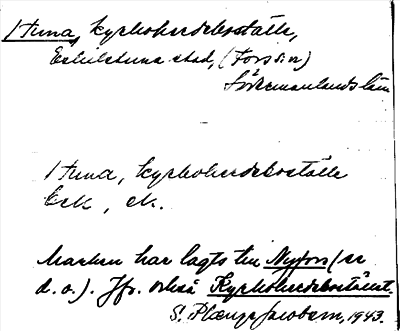 1 Tuna, kyrkoherdeboställe,
Eskilstuna stad, (Fors sn)
Södermanlands län
1 Tuna, kyrkoherdeboställe
Eek, ek.
Marken har lagts till Nyfors (se
d. o.). Jfr. också Kyrkoherdebostället.
S. Jacobsen, 1943.